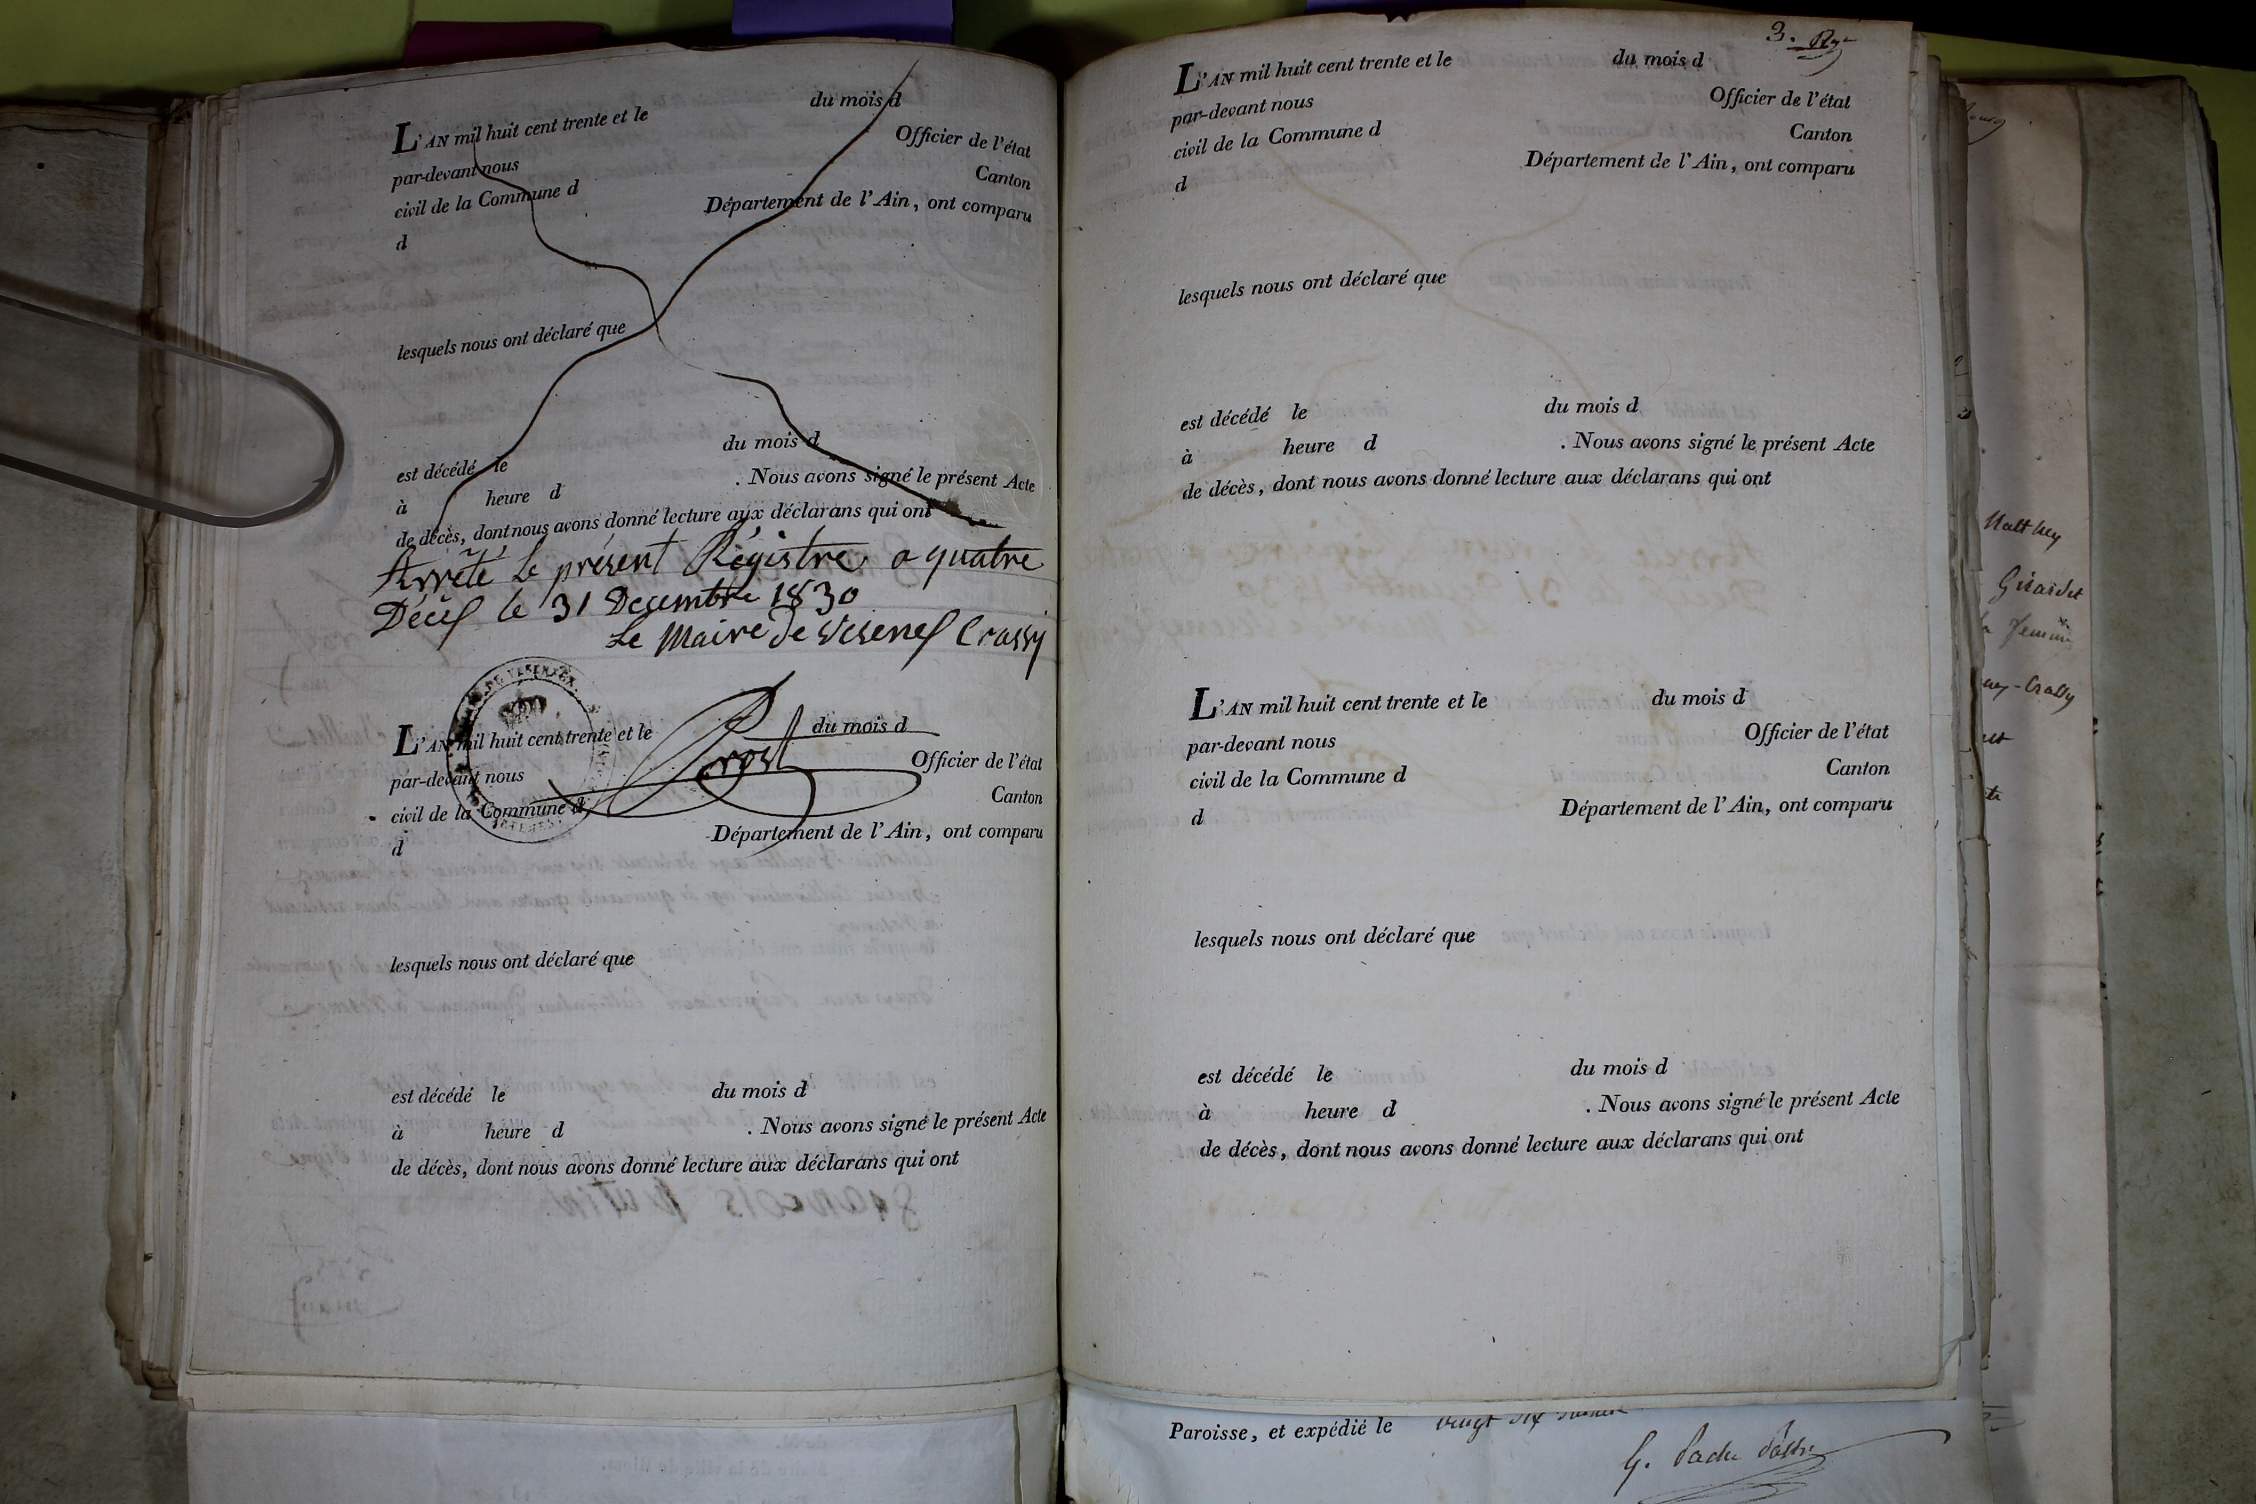 L'AN mil huit cent trente et le du mois d
par-devant nous Officier de l'état
civil de la Commune d Canton
d Département de l'Ain, ont comparu
lesquels nous ont déclaré que
est décédé le du mois d
à heure d . Nous avons signé le présent Acte
de décès, dont nous avons donné lecture aux déclarans qui ont
Arrêté le présent Régistre a quatre
Décès le 31 Decembre 1830
Le Maire de Vesenex Crassy
Prost
L'AN mil huit cent trente et le du mois d
par-devant nous Officier de l'état
civil de la Commune d Canton
d Département de l'Ain, ont comparu
lesquels nous ont déclaré que
est décédé le du mois d
à heure d . Nous avons signé le présent Acte
de décès, dont nous avons donné lecture aux déclarans qui ont
3.
L'AN mil huit cent trente et le du mois d
par-devant nous Officier de l'état
civil de la Commune d Canton
d Département de l'Ain, ont comparu
lesquels nous ont déclaré que
est décédé le du mois d
à heure d . Nous avons signé le présent Acte
de décès, dont nous avons donné lecture aux déclarans qui ont
L'AN mil huit cent trente et le du mois d
par-devant nous Officier de l'état
civil de la Commune d Canton
d Département de l'Ain, ont comparu
lesquels nous ont déclaré que
est décédé le du mois d
à heure d . Nous avons signé le présent Acte
de décès, dont nous avons donné lecture aux déclarans qui ont
Paroisse, et expédié le vingt
Matthey
Girardet